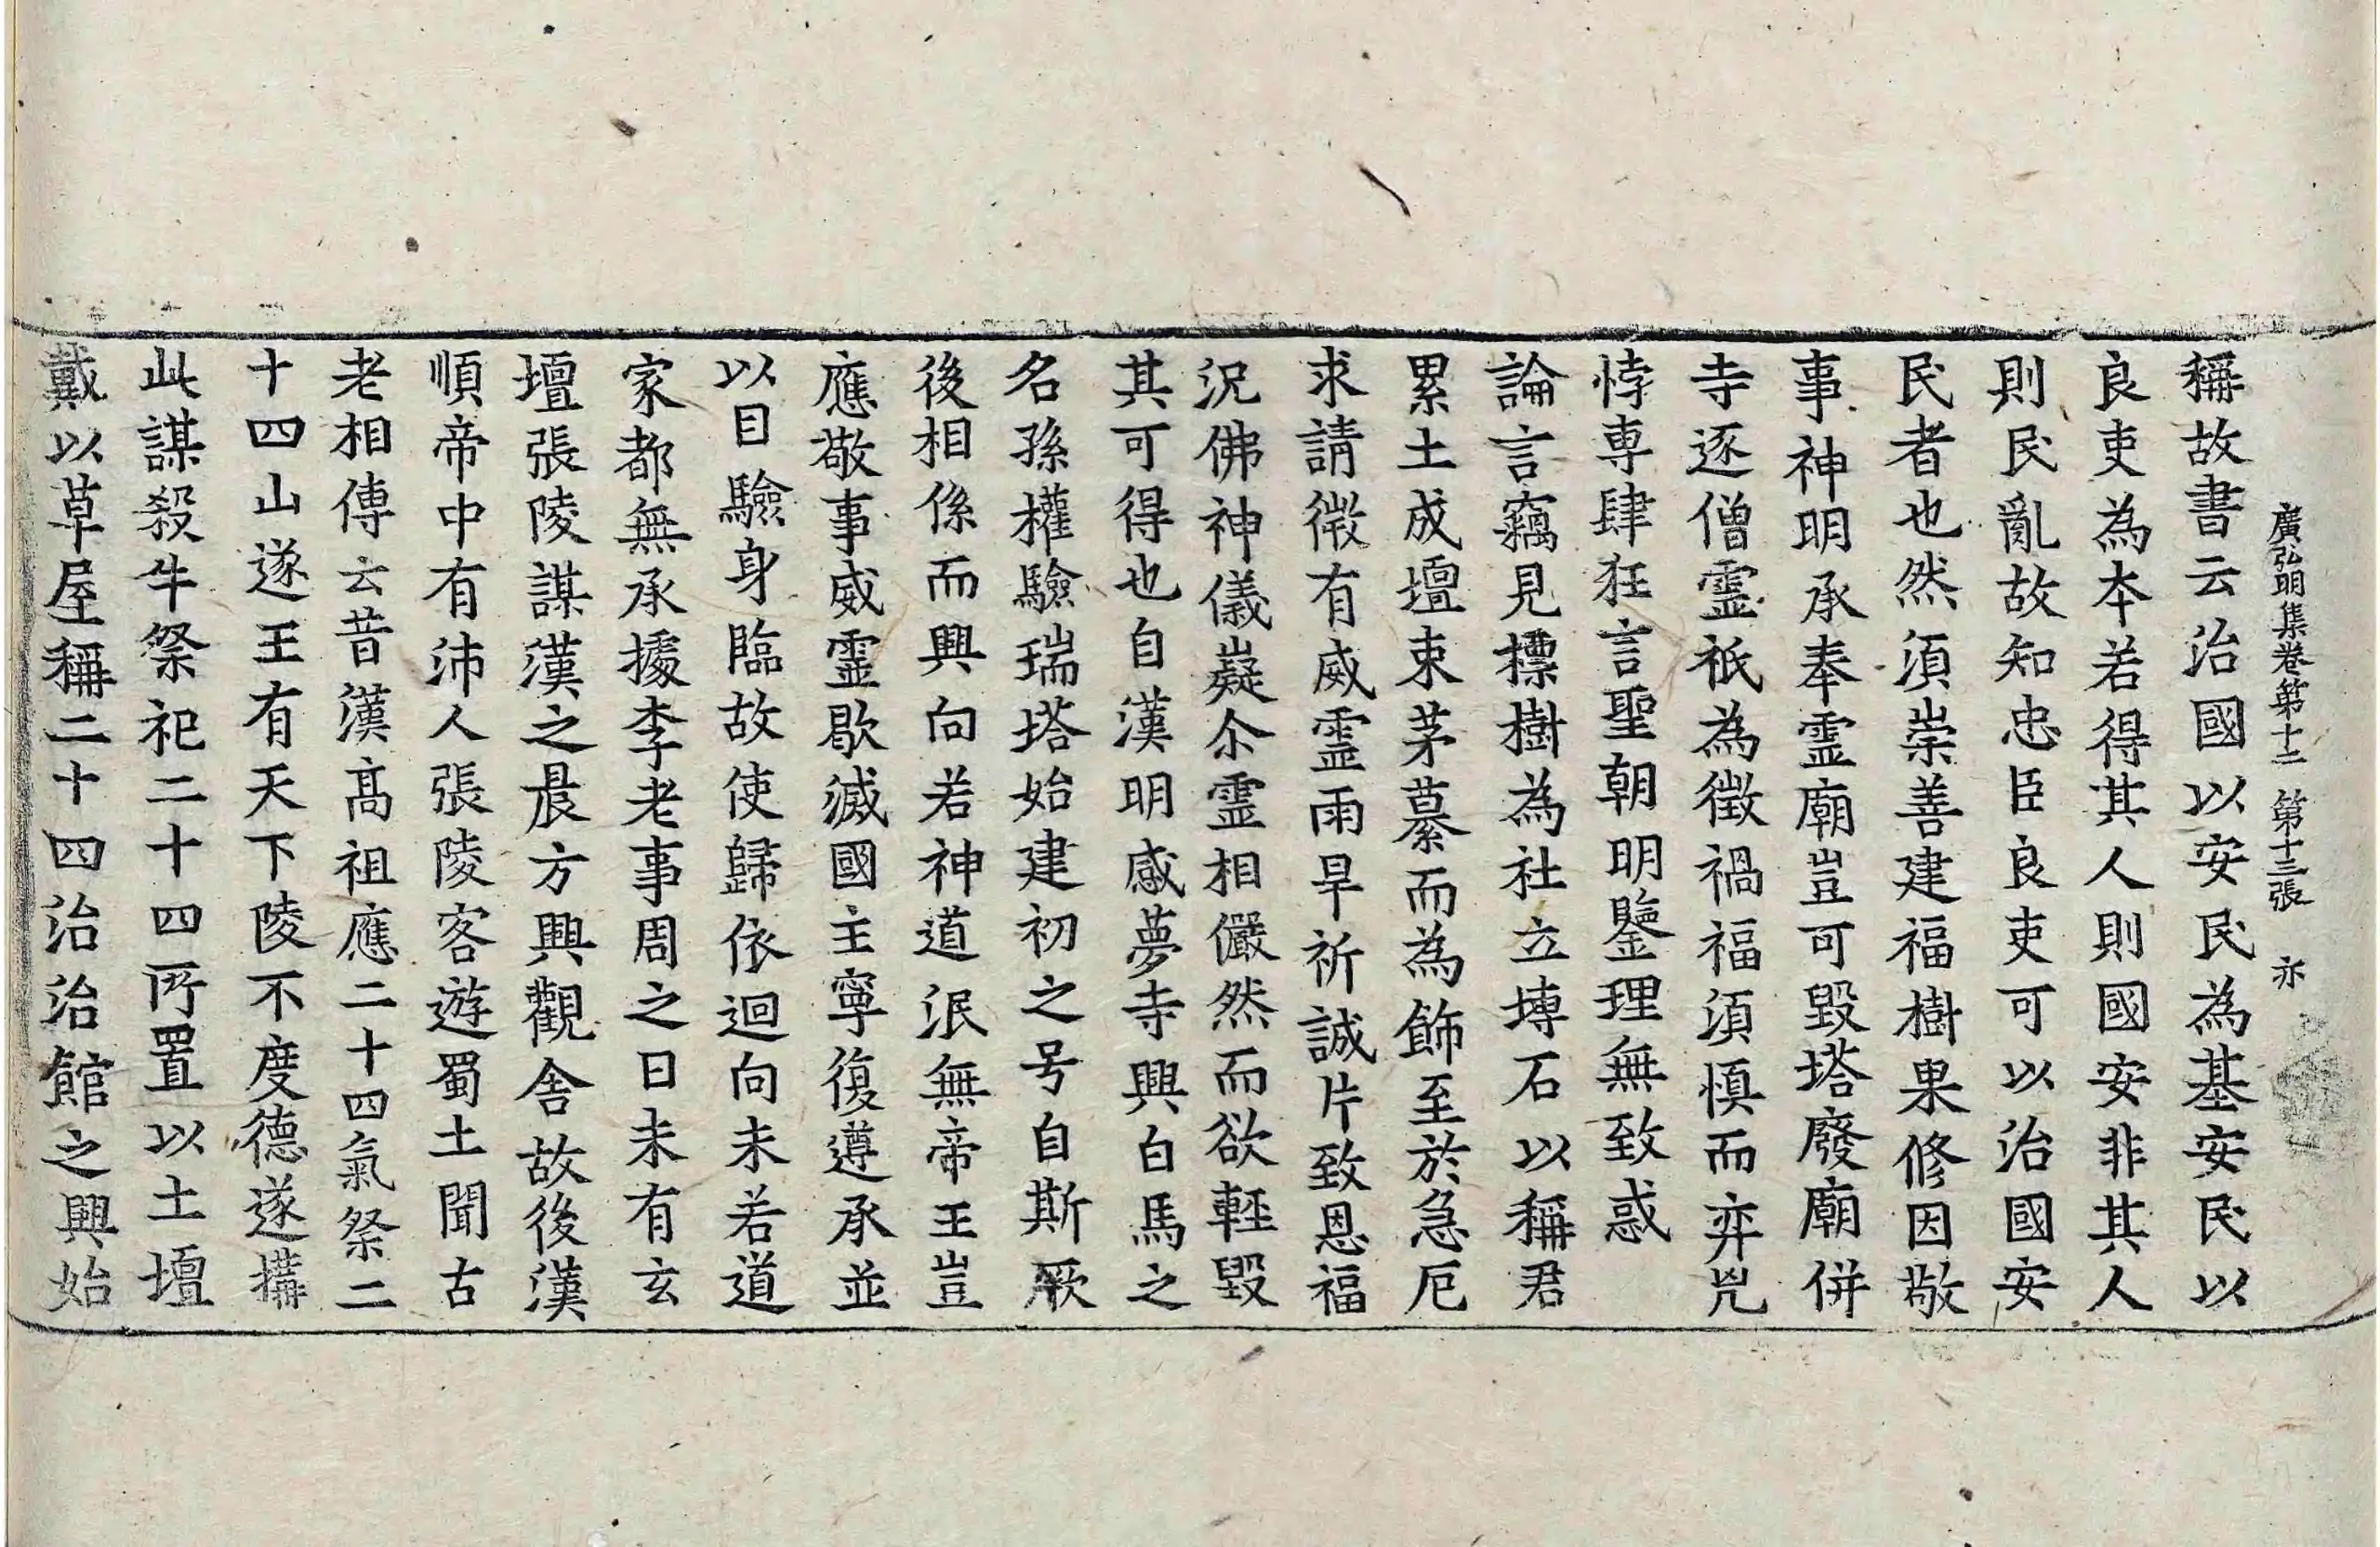 廣弘明集卷第十二 第十三張 亦
稱故書云治國以安民為基安民以
良吏為本若得其人則國安非其人
則民亂故知忠臣良吏可以治國安
民者也然須崇善建福樹果修因敬
事神明承奉霊廟豈可毀塔廢廟併
寺逐僧霊祇為徵禍福須慎而弃兇
悖専肆狂言聖朝明鑒理無致惑
論言竊見摽樹為社立塼石以稱君
累土成壇束茅纂而為飾至於急厄
求請微有威霊雨旱祈誠片致恩福
況佛神儀嶷尒霊相儼然而欲輕毀
其可得也自漢明感夢寺興白馬之
名孫權驗瑞塔始建初之号自斯厥
後相係而興向若神道泯無帝王豈
應敬事威霊歇滅國主寧復遵承並
以目驗身臨故使歸依迴向未若道
家都無承據李老事周之日未有玄
壇張陵謀漢之晨方興觀舍故後漢
順帝中有沛人張陵客遊蜀土聞古
老相傳云昔漢髙祖應二十四氣祭二
十四山遂王有天下陵不度德遂搆
此謀殺牛祭祀二十四所置以土壇
戴以草屋稱二十四治治館之興始